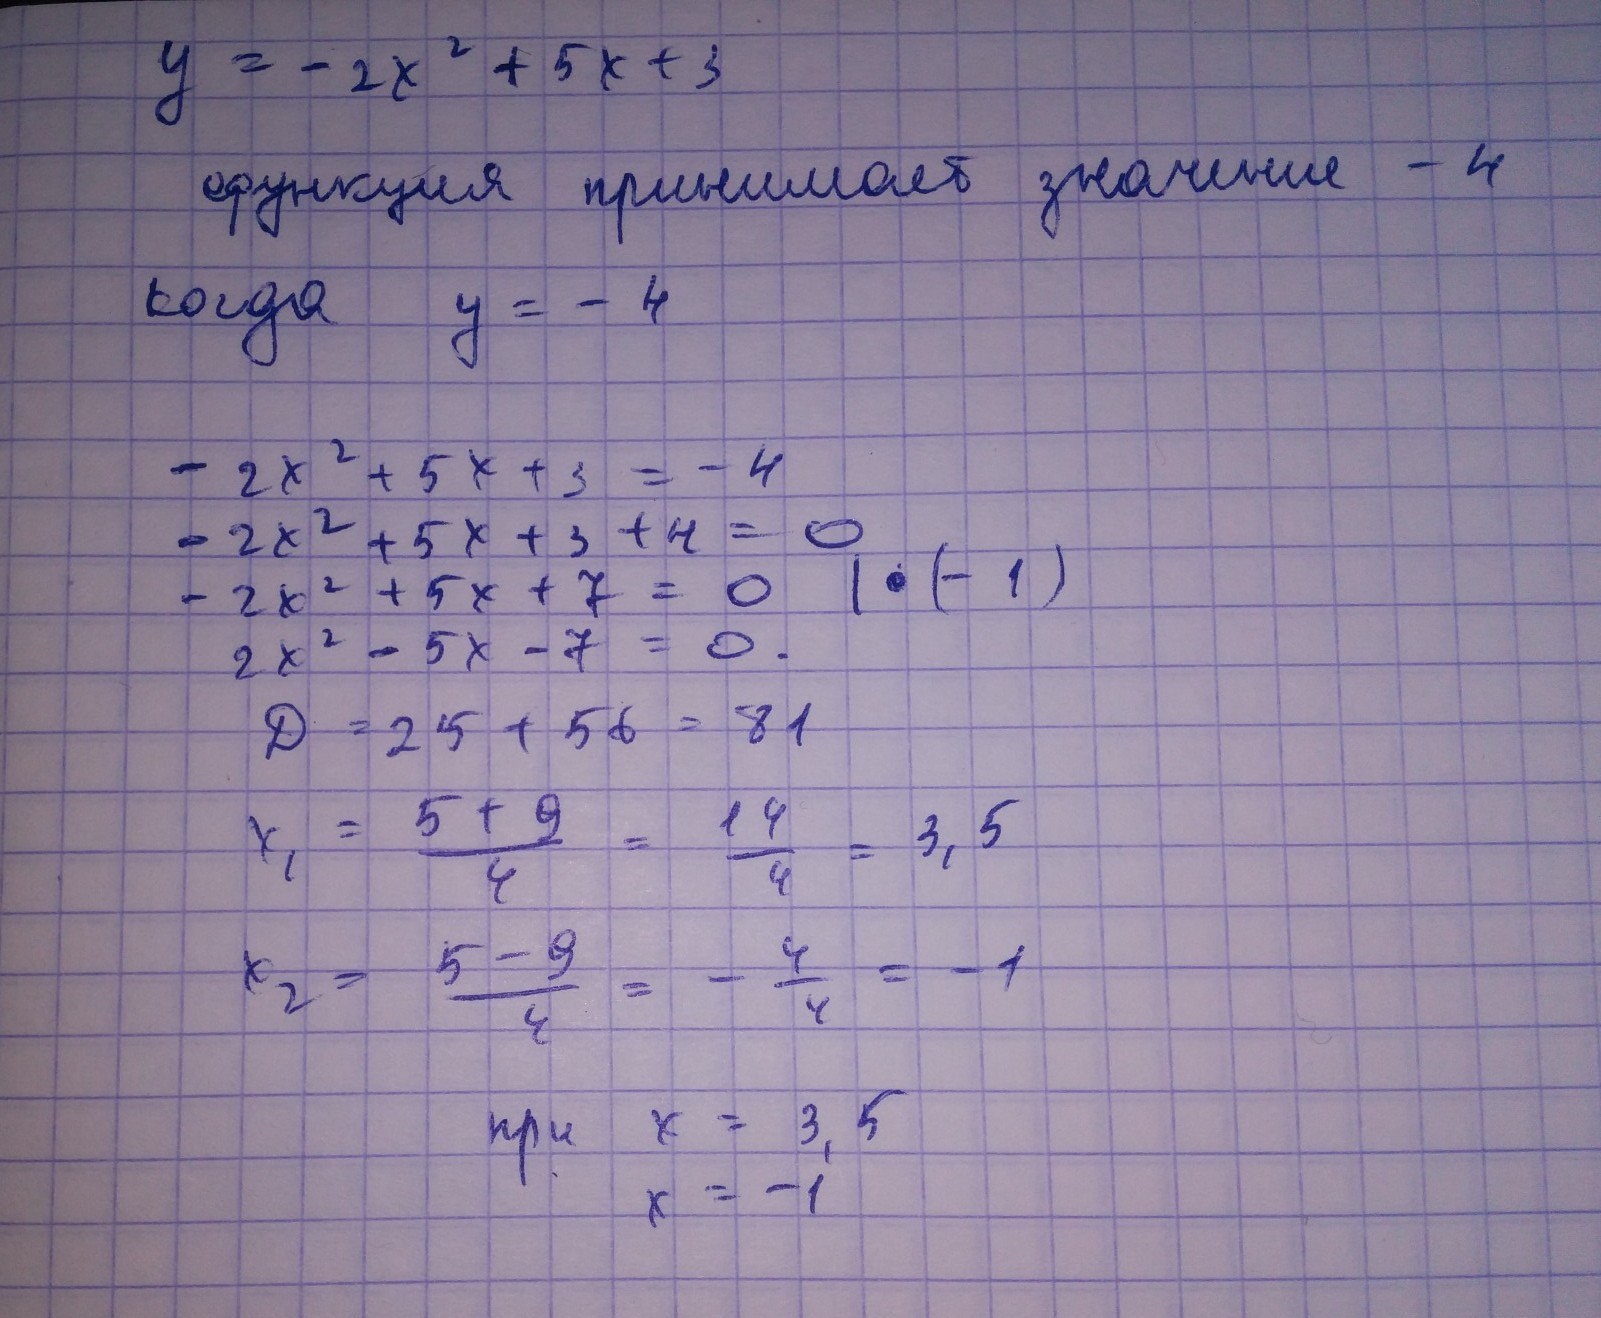 y = -2x² + 5x + 3
функция принимает значение -4
когда y = -4
-2x² + 5x + 3 = -4
-2x² + 5x + 3 + 4 = 0
-2x² + 5x + 7 = 0 | • (-1)
2x² - 5x - 7 = 0.
D = 25 + 56 = 81
x₁ = (5 + 9)/4 = 14/4 = 3,5
x₂ = (5 - 9)/4 = - 4/4 = -1
при x = 3,5
x = -1